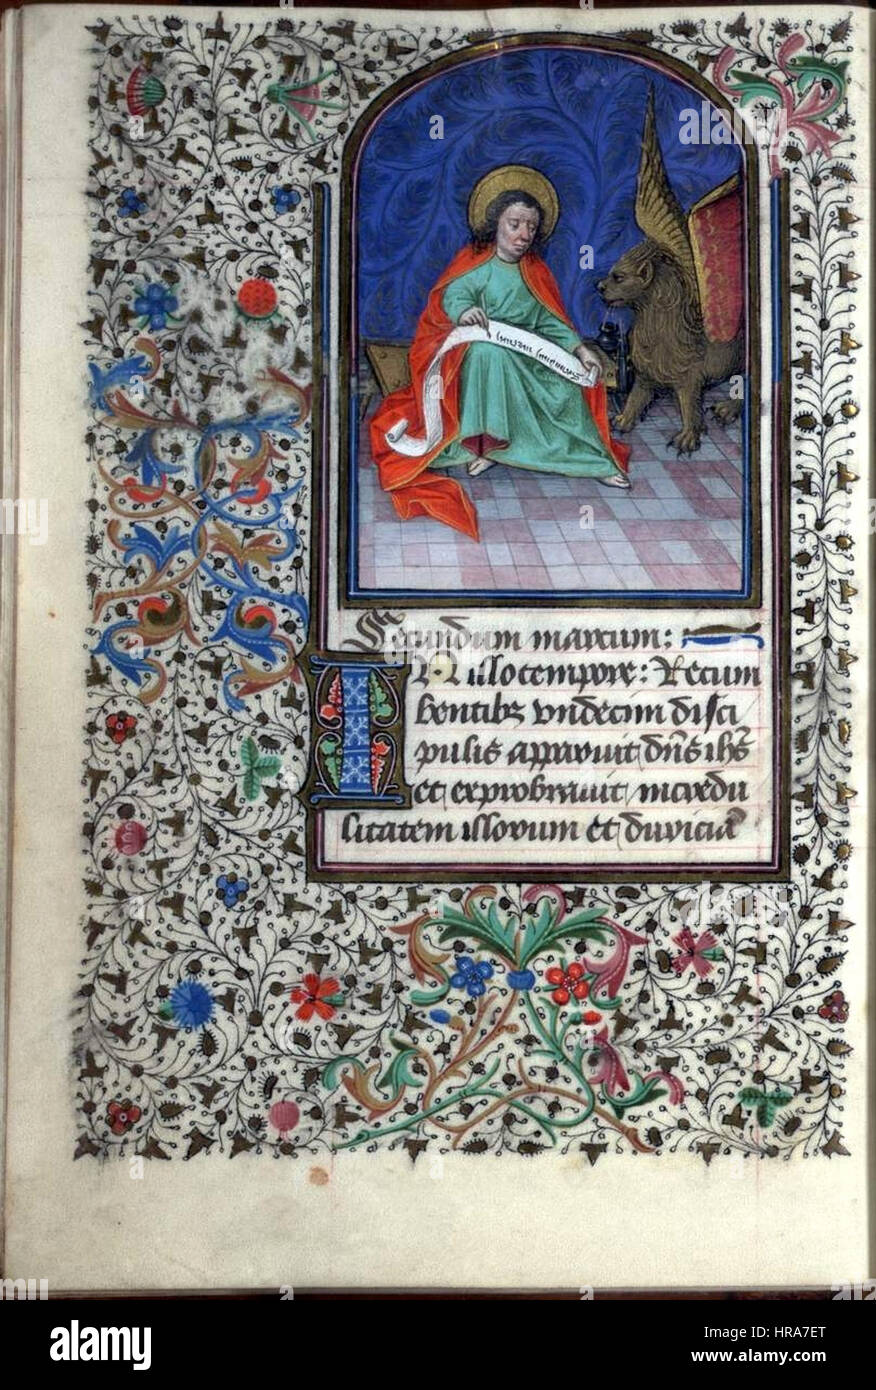 Secundum marcum:
IN illo tempore: Recum
bentibs undecim disci
pulis apparuit dn̄s ihs̄
et exprobrauit incredu
litatem illorum et duriciā
alamy
Image ID: HRA7ET
www.alamy.com